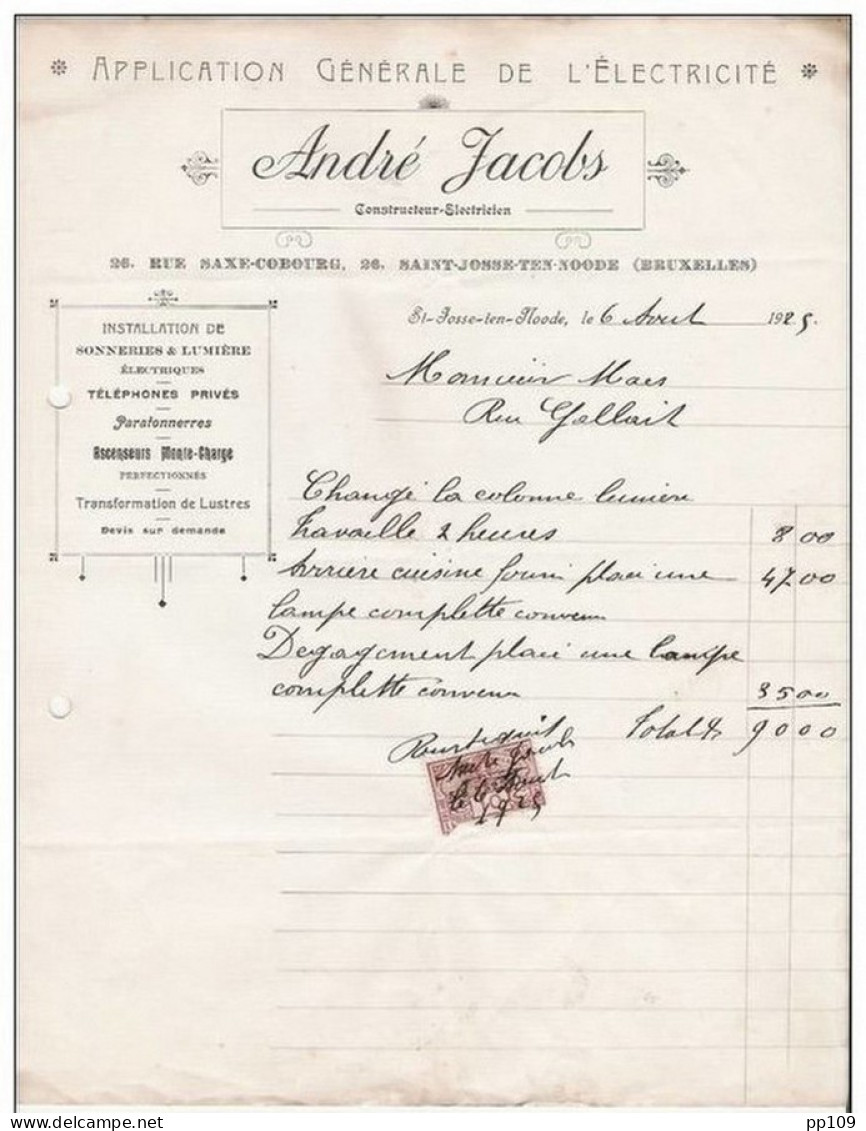 APPLICATION GÉNÉRALE DE L'ÉLECTRICITÉ
André Jacobs
Constructeur-Electricien
26. RUE SAXE-COBOURG, 26. SAINT-JOSSE-TEN-NOODE (BRUXELLES)
St-Josse-ten-Noode, le 6 Avril 1925.
INSTALLATION DE
SONNERIES & LUMIÈRE
ÉLECTRIQUES
TÉLÉPHONES PRIVÉS
Paratonnerres
Ascenseurs Monte-Charge
PERFECTIONNÉS
Transformation de Lustres
Devis sur demande
Monsieur Maes
Rue Gallait
Changé la colonne lumière
travaille 2 heures 8 00
Arrière cuisine fourni placé une 47 00
lampe complette convenu
Degagement placé une lampe
complette convenu 35 00
Total 90 00
Pour acquit
André Jacobs
le 6
1925
pp109